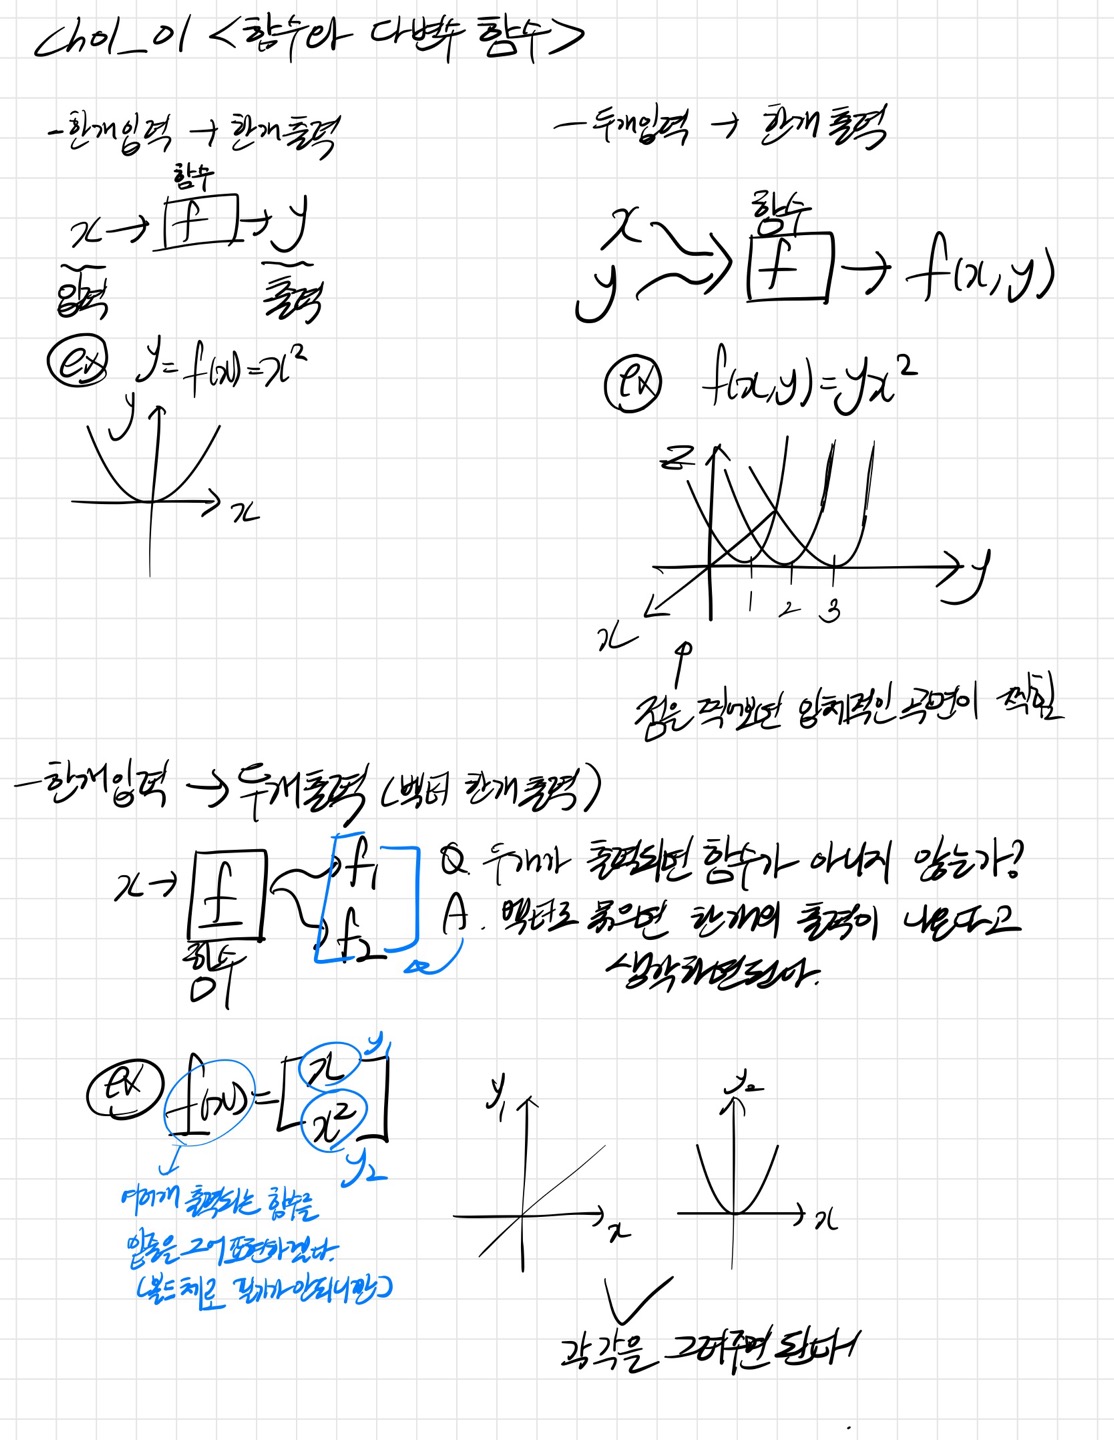 Ch01_01 <함수와 다변수 함수>
-한개입력 → 한개출력
함수
x → f → y
입력 출력
ex y = f(x) = x²
y
x
-두개입력 → 한개 출력
함수
x
y
f → f(x, y)
ex f(x,y) = yx²
z
y
1 2 3
x
점을 찍어보면 입체적인 곡면이 찍힘
-한개입력 → 두개출력 (벡터 한개 출력)
x → f
f₁
f₂
함수
Q. 두개가 출력되면 함수가 아니지 않는가?
A. 벡터로 묶으면 한개의 출력이 나온다고
생각하면된다.
ex f(x) = [x x²]
y₁
y₂
여러개 출력되는 함수를
밑줄을 그어 표현하겠다.
(볼드체로 필기가 안되니깐)
y₁
x
y₂
x
각각을 그려주면 된다